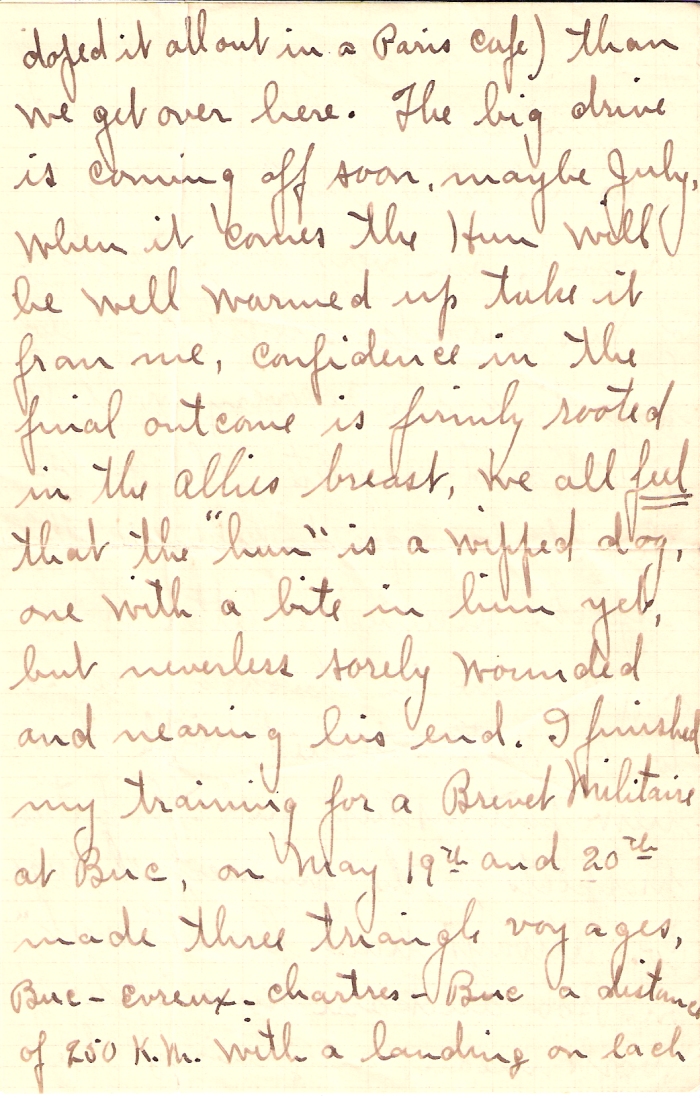 doped it all out in a Paris Cafe) than
we get over here. The big drive
is coming off soon, maybe July,
when it comes the Hun will
be well warmed up take it
from me, confidence in the
final outcome is firmly rooted
in the Allies breast, we all feel
that the "hun" is a wipped dog,
one with a bite in him yet,
but neverless sorely wounded
and nearing his end. I finished
my training for a Brevet Militaire
at Buc, on May 19th and 20th
made three triangle voyages,
Buc - Evreux - Chartres - Buc a distance
of 250 K.M. with a landing on each